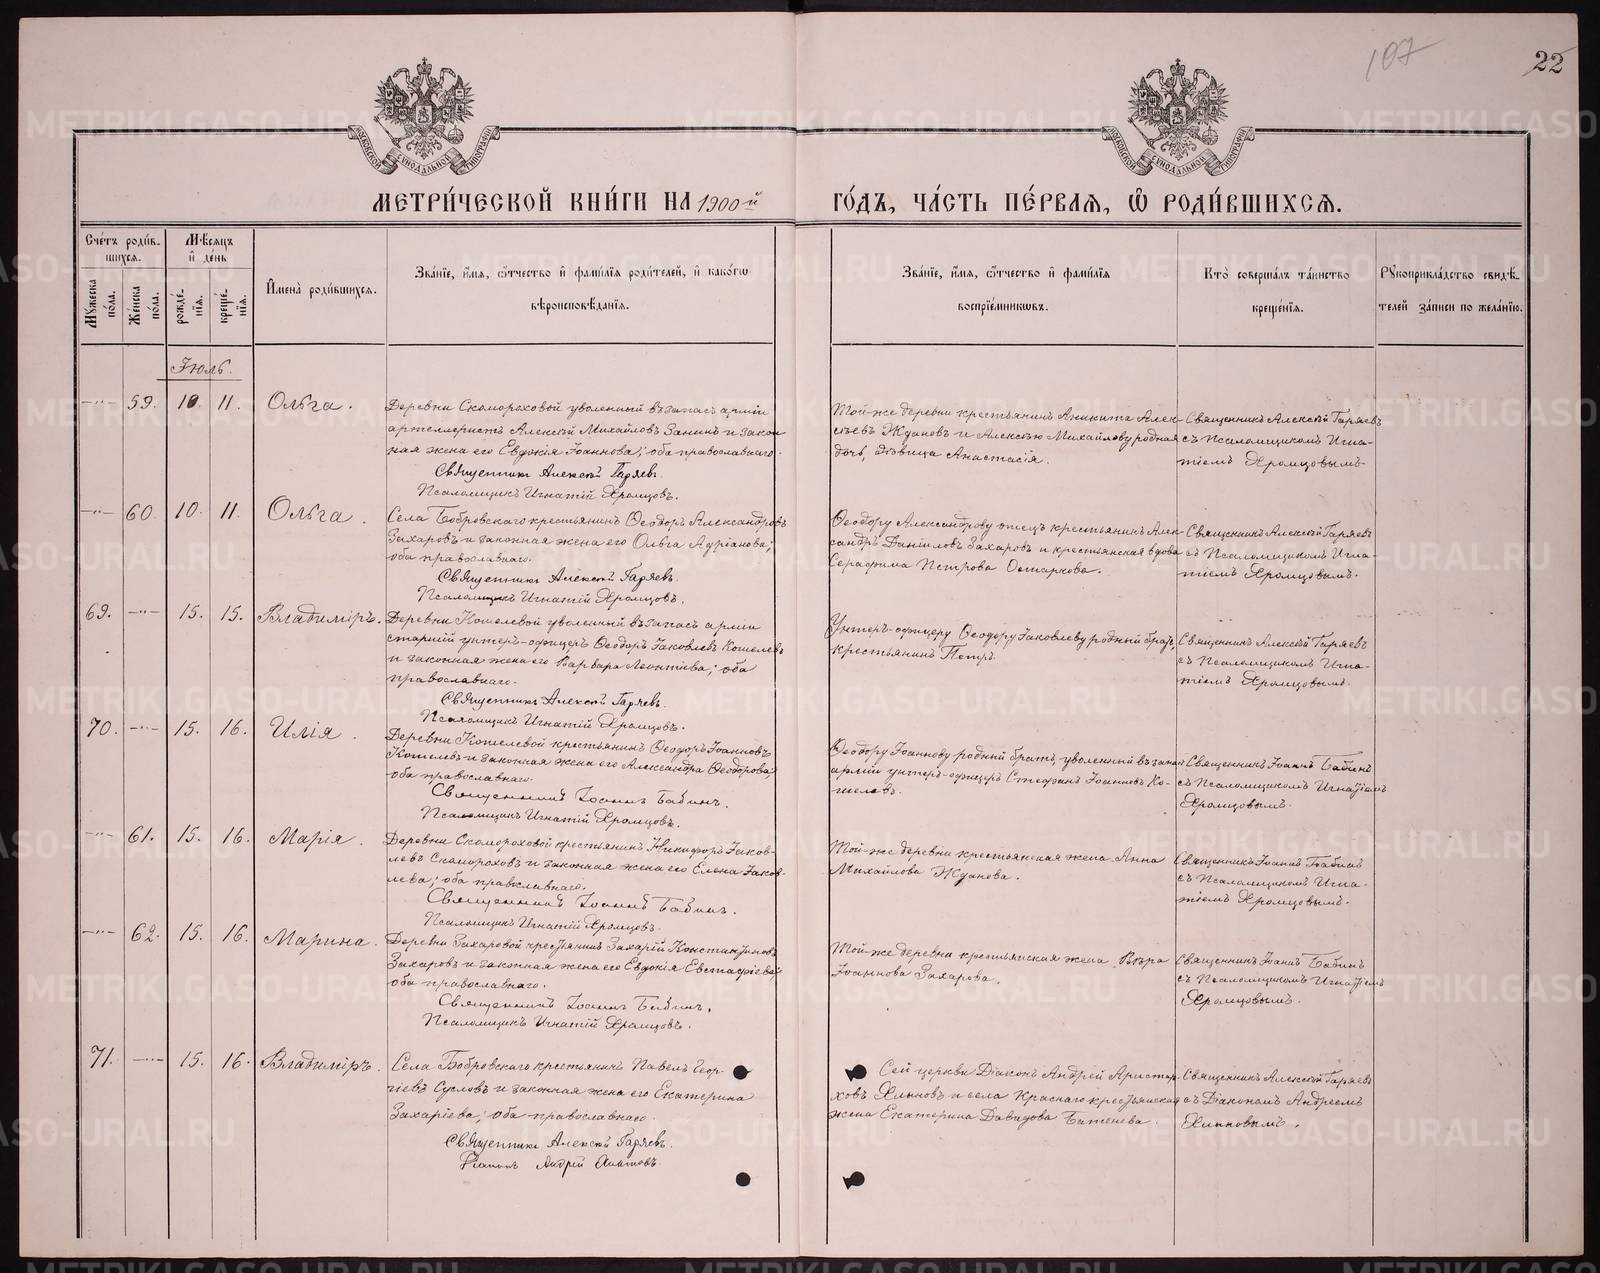 107
22
МОСКОВСКОЙ СѴНОДАЛЬНОЙ ТИПОГРАФІИ
МОСКОВСКОЙ СѴНОДАЛЬНОЙ ТИПОГРАФІИ
МЕТРИ́ЧЕСКОЙ КНИ́ГИ НА 1900-й ГО́ДЪ, ЧА́СТЬ ПЕ́РВАѦ, Ѡ҆ РОДИ́ВШИХСѦ.
Сче́тъ роди́в-
шихсѧ.
Мѣ́сѧцъ
и҆ де́нь
Мꙋ́жеска
по́ла.
Же́нска
по́ла.
рожде́-
нїѧ.
креще́-
нїѧ.
И҆мена̀ роди́вшихсѧ.
Зва́нїе, и҆́мѧ, ѻ҆́тчество и҆ фами́лїѧ роди́телей, и҆ како́гѡ
вѣроисповѣ́данїѧ.
Зва́нїе, и҆́мѧ, ѻ҆́тчество и҆ фами́лїѧ
воспрїе́мникѡвъ.
Кто̀ соверша́лъ та́инство
креще́нїѧ.
Рꙋкоприкла́дство свидѣ́-
телей за́писи по жела́нїю.
Іюль.
—"— 59. 10. 11. Ольга.
Деревни Скомороховой уволенный въ запасъ арміи
артеллеристъ Алексѣй Михайловъ Занинъ и закон
ная жена его Евдокія Іоаннова; оба православнаго.
Священникъ Алексѣй Гаряевъ.
Псаломщикъ Игнатій Хромцовъ.
Той-же деревни крестьянинъ Аникита Алек-
сѣевъ Ждановъ и Алексѣю Михайлову родная
дочь, дѣвица Анастасія.
Священникъ Алексѣй Гаряевъ
съ Псаломщикомъ Игна-
тіемъ Хромцовымъ.
—"— 60. 10. 11. Ольга.
Села Бобровскаго крестьянинъ Ѳеодоръ Александровъ
Захаровъ и законная жена его Ольга Адріанова;
оба православнаго.
Священникъ Алексѣй Гаряевъ.
Псаломщикъ Игнатій Хромцовъ.
Ѳеодору Александрову отецъ крестьянинъ Алек-
сандръ Даніиловъ Захаровъ и крестьянская вдова
Серафима Петрова
Священникъ Алексѣй Гаряевъ
съ Псаломщикомъ Игна-
тіемъ Хромцовымъ.
69. —"— 15. 15. Владиміръ.
Деревни Кошелевой уволенный въ запасъ арміи
старшій унтеръ-офицеръ Ѳеодоръ Іаковлевъ Кошелевъ
и законная жена его Варвара Леонтіева; оба
православнаго.
Священникъ Алексѣй Гаряевъ.
Псаломщикъ Игнатій Хромцовъ.
Унтеръ-офицеру Ѳеодору Іаковлеву родный братъ,
крестьянинъ Петръ.
Священникъ Алексѣй Гаряевъ
съ Псаломщикомъ Игна-
тіемъ Хромцовымъ.
70. —"— 15. 16. Илія.
Деревни Кошелевой крестьянинъ Ѳеодоръ Іоанновъ
Кошелевъ и законная жена его Александра Ѳеодорова;
оба православнаго.
Священникъ Іоаннъ Бабинъ.
Псаломщикъ Игнатій Хромцовъ.
Ѳеодору Іоаннову родный братъ, уволенный въ запасъ
арміи унтеръ-офицеръ Стефанъ Іоанновъ Ко-
шелевъ.
Священникъ Іоаннъ Бабинъ
съ Псаломщикомъ Игнатіемъ
Хромцовымъ.
—"— 61. 15. 16. Марія.
Деревни Скомороховой крестьянинъ Никифоръ Іаков-
левъ Скомороховъ и законная жена его Елена Іаков-
лева; оба православнаго.
Священникъ Іоаннъ Бабинъ.
Псаломщикъ Игнатій Хромцовъ.
Той-же деревни крестьянская жена Анна
Михайлова Жданова.
Священникъ Іоаннъ Бабинъ
съ Псаломщикомъ Игна-
тіемъ Хромцовымъ.
—"— 62. 15. 16. Марина.
Деревни Захаровой крестьянинъ Захарій Константиновъ
Захаровъ и законная жена его Евдокія Евстафіева;
оба православнаго.
Священникъ Іоаннъ Бабинъ.
Псаломщикъ Игнатій Хромцовъ.
Той-же деревни крестьянская жена Вѣра
Іоаннова Захарова.
Священникъ Іоаннъ Бабинъ
съ Псаломщикомъ Игнатіемъ
Хромцовымъ.
71. —"— 15. 16. Владиміръ.
Села Бобровскаго крестьянинъ Павелъ Геор-
гіевъ Сусловъ и законная жена его Екатерина
Захаріева; оба православнаго.
Священникъ Алексѣй Гаряевъ.
Діаконъ Андрей Хлыновъ.
Сей церкви Діаконъ Андрей Аристар-
ховъ Хлыновъ и села Краснаго крестьянская
жена Екатерина Давидова Батенева.
Священникъ Алексѣй Гаряевъ
съ Діакономъ Андреемъ
Хлыновымъ.
METRIKI.GASO-URAL.RU